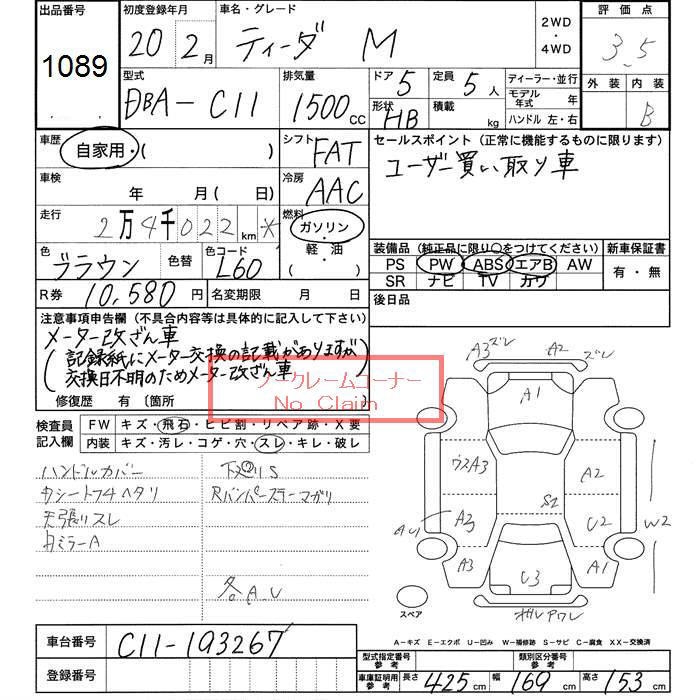 出品番号 初度登録年月 車名・グレード 2WD・4WD 評価点
1089 20 2月 ティーダ M 3.5
型式 排気量 ドア 5 定員 5人 ディーラー・並行 外装 内装
DBA-C11 1500cc 形状 HB 積載 kg モデル年式 年 B
ハンドル 左・右
車歴 自家用・( ) シフト FAT セールスポイント(正常に機能するものに限ります)
車検 年 月( 日) 冷房 AAC ユーザー買い取り車
走行 2万4千022km * 燃料 ガソリン・軽油・( )
色 ブラウン 色替 色コード L60 装備品(純正品に限り○をつけてください) 新車保証書
PS PW ABS エアB AW 有・無
SR ナビ TV カワ
R券 10,580円 名変期限 月 日 後日品
注意事項申告欄(不具合内容等は具体的に記入して下さい)
メーター改ざん車
(記録紙にメーター交換の記載がありますが
交換日不明のためメーター改ざん車)
ノークレームコーナー
No Claim
修復歴 有〔箇所
検査員記入欄 FW キズ・飛石・ヒビ割・リペア跡・X要
内装 キズ・汚レ・コゲ・穴・スレ・キレ・破レ
ハンドルカバー 下廻りS
天張りスレ
ミラーA
各A.U
A3 ズレ A2 ズレ
A1
A3 A2
S2
A2 U2 W2
A3 U3 A1
スペア
A-キズ E-エクボ U-凹み W-補修跡 S-サビ C-腐食 XX-交換済
車台番号 C11-193267
登録番号
型式指定番号 参考 類別区分番号 参考
車庫証明用 参考 長さ 425cm 幅 169cm 高さ 153cm